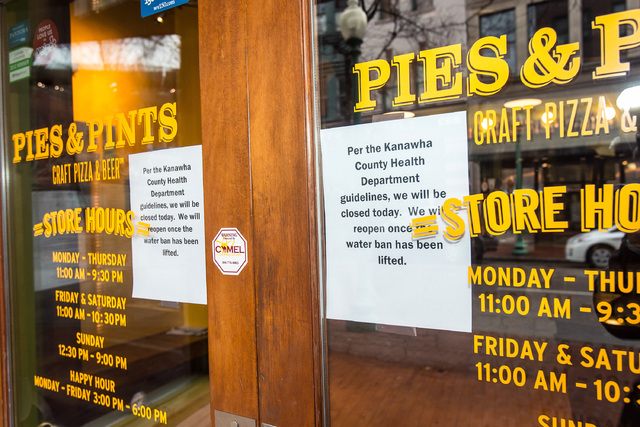 PIES & PINTS
CRAFT PIZZA & BEER
STORE HOURS
MONDAY - THURSDAY
11:00 AM - 9:30 PM
FRIDAY & SATURDAY
11:00 AM - 10:30 PM
SUNDAY
12:30 PM - 9:00 PM
HAPPY HOUR
MONDAY - FRIDAY 3:00 PM - 6:00 PM
Per the Kanawha
County Health
Department
guidelines, we will be
closed today. We will
reopen once the
water ban has been
lifted.
WARNING
CAMEL
PIES & P
CRAFT PIZZA &
Per the Kanawha
County Health
Department
guidelines, we will be
closed today. We wil
reopen once
water ban has been
lifted.
STORE HO
MONDAY - THU
11:00 AM - 9:3
FRIDAY & SATU
11:00 AM - 10:
SUN